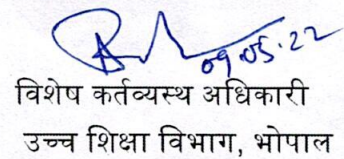 09.05.22
विशेष कर्तव्यस्थ अधिकारी
उच्च शिक्षा विभाग, भोपाल